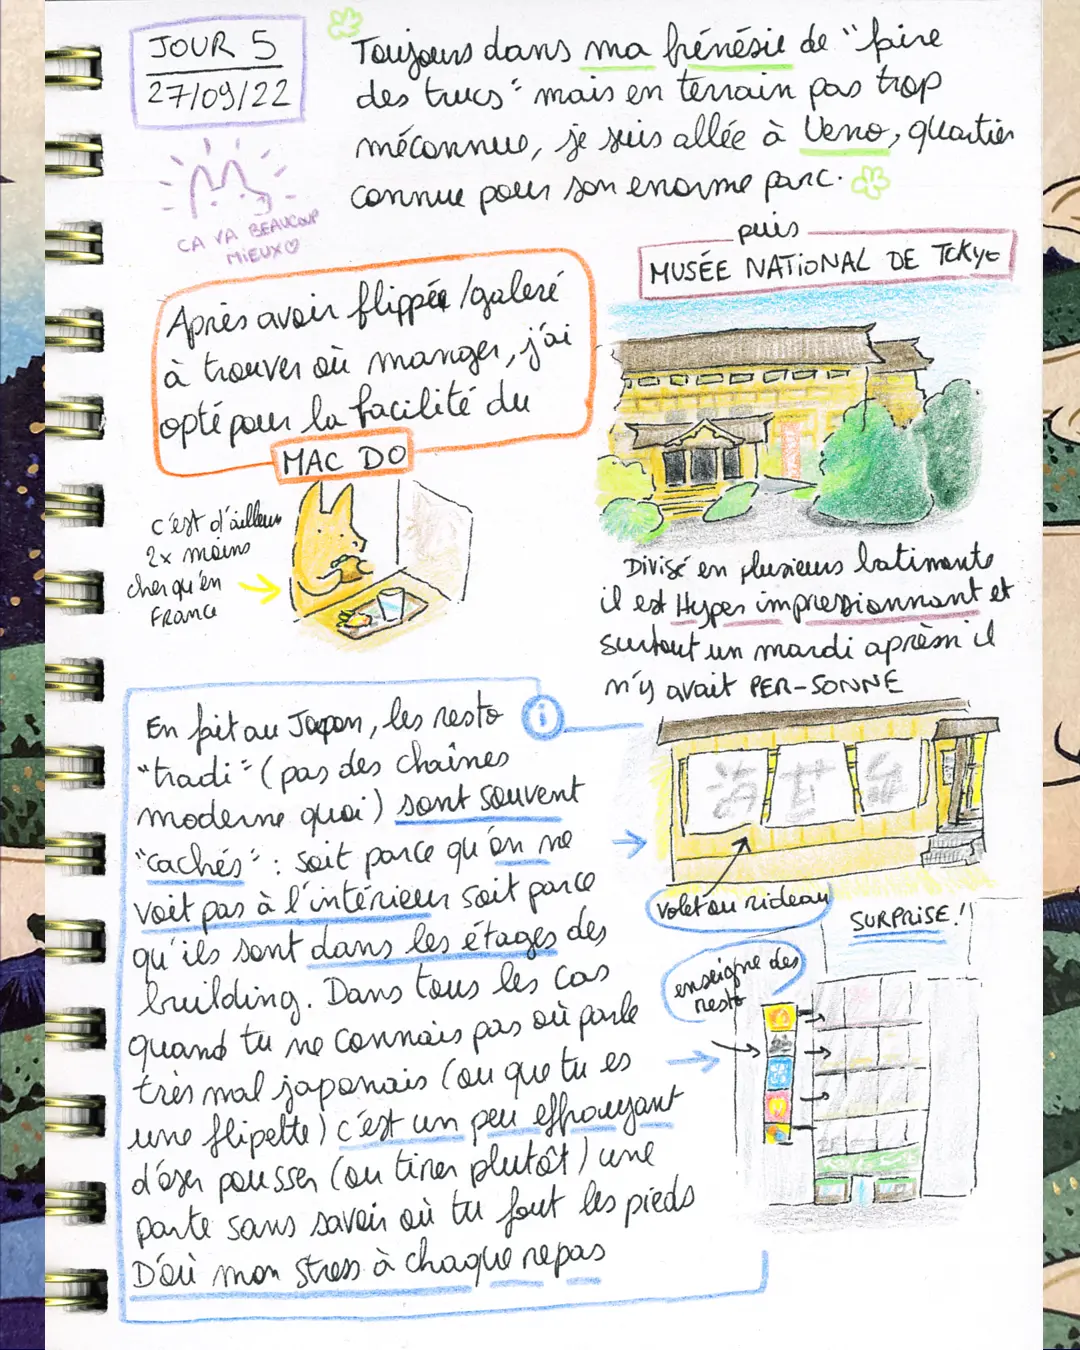 JOUR 5
27/09/22
ÇA VA BEAUCOUP
MIEUX
Toujours dans ma frénésie de "faire
des trucs" mais en terrain pas trop
méconnue, je suis allée à Ueno, quartier
connue pour son enorme parc.
puis
MUSÉE NATIONAL DE TOKYO
Après avoir flippée/galeré
à trouver où manger, j'ai
opté pour la facilité du
MAC DO
c'est d'ailleurs
2x moins
cher qu'en
FRANCE
Divisé en plusieurs batiments
il est Hyper impressionnant et
surtout un mardi aprèm il
n'y avait PER-SONNE
En fait au Japon, les resto
"tradi" (pas des chaînes
moderne quoi) sont souvent
"cachés" : soit parce qu'on ne
voit pas à l'intérieur soit parce
qu'ils sont dans les étages des
building. Dans tous les cas
quand tu ne connais pas où parle
très mal japonais (ou que tu es
une flipette) c'est un peu effrayant
d'oser pousser (ou tirer plutôt) une
porte sans savoir où tu fout les pieds
D'où mon stress à chaque repas
volet ou rideau
SURPRISE !!
enseigne des
resto